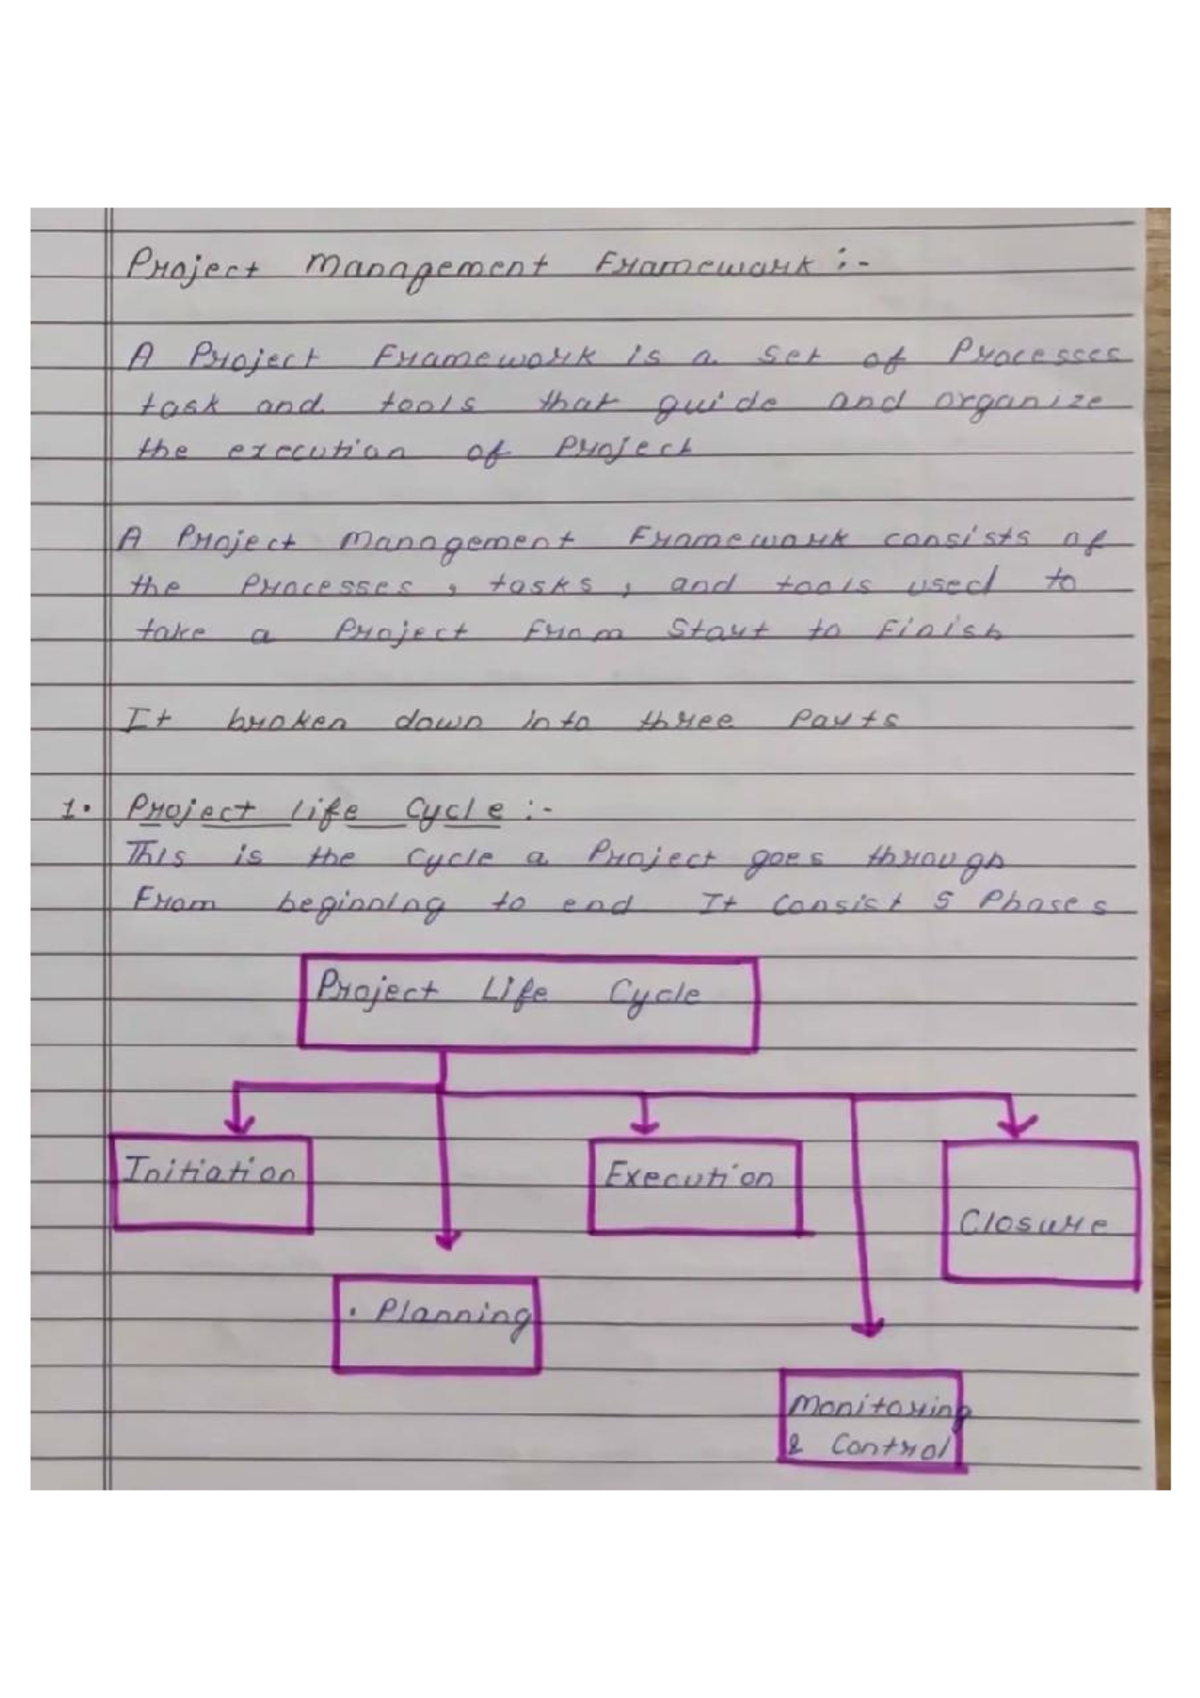 Project Management Framework :-
A Project Framework is a set of Processes
task and tools that guide and organize
the execution of Project
A Project Management Framework consists of
the Processes, tasks, and tools used to
take a Project From Start to Finish
It broken down into three Parts
1. Project life Cycle :-
This is the Cycle a Project goes through
From beginning to end It Consist 5 Phases
Project Life Cycle
Initiation
Execution
Closure
. Planning
Monitoring
& Control